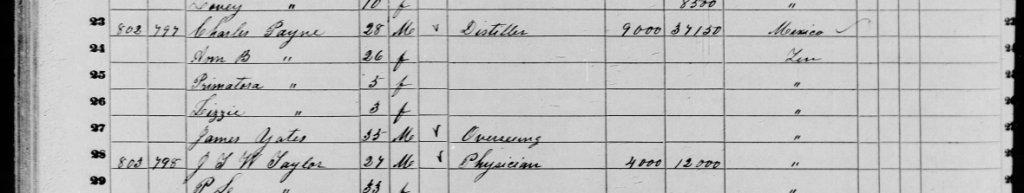 Lovey " 10 f 8500 "
23 802 797 Charles Payne 28 M Distiller 9000 37150 Mexico
24 Ann B " 26 f Ten
25 Primatora " 5 f "
26 Lizzie " 3 f "
27 James Yates 35 M Overseeing "
28 803 798 J T W Taylor 27 M Physician 4000 12000 "
29 " 33 f "